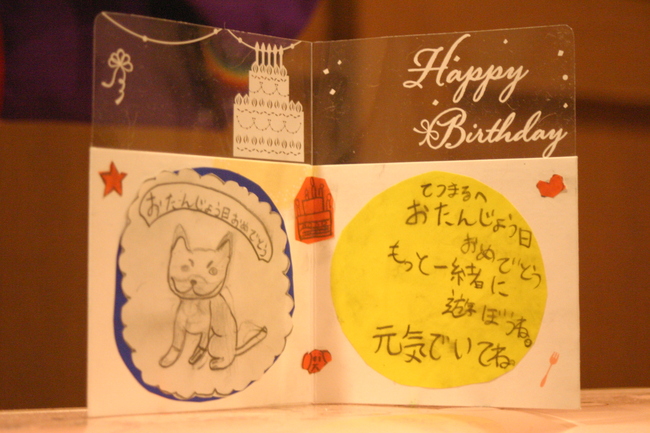 Happy
Birthday
おたんじょう日おめでとう
てつまるへ
おたんじょう日
おめでとう
もっと一緒に
遊ぼうね。
元気でいてね。